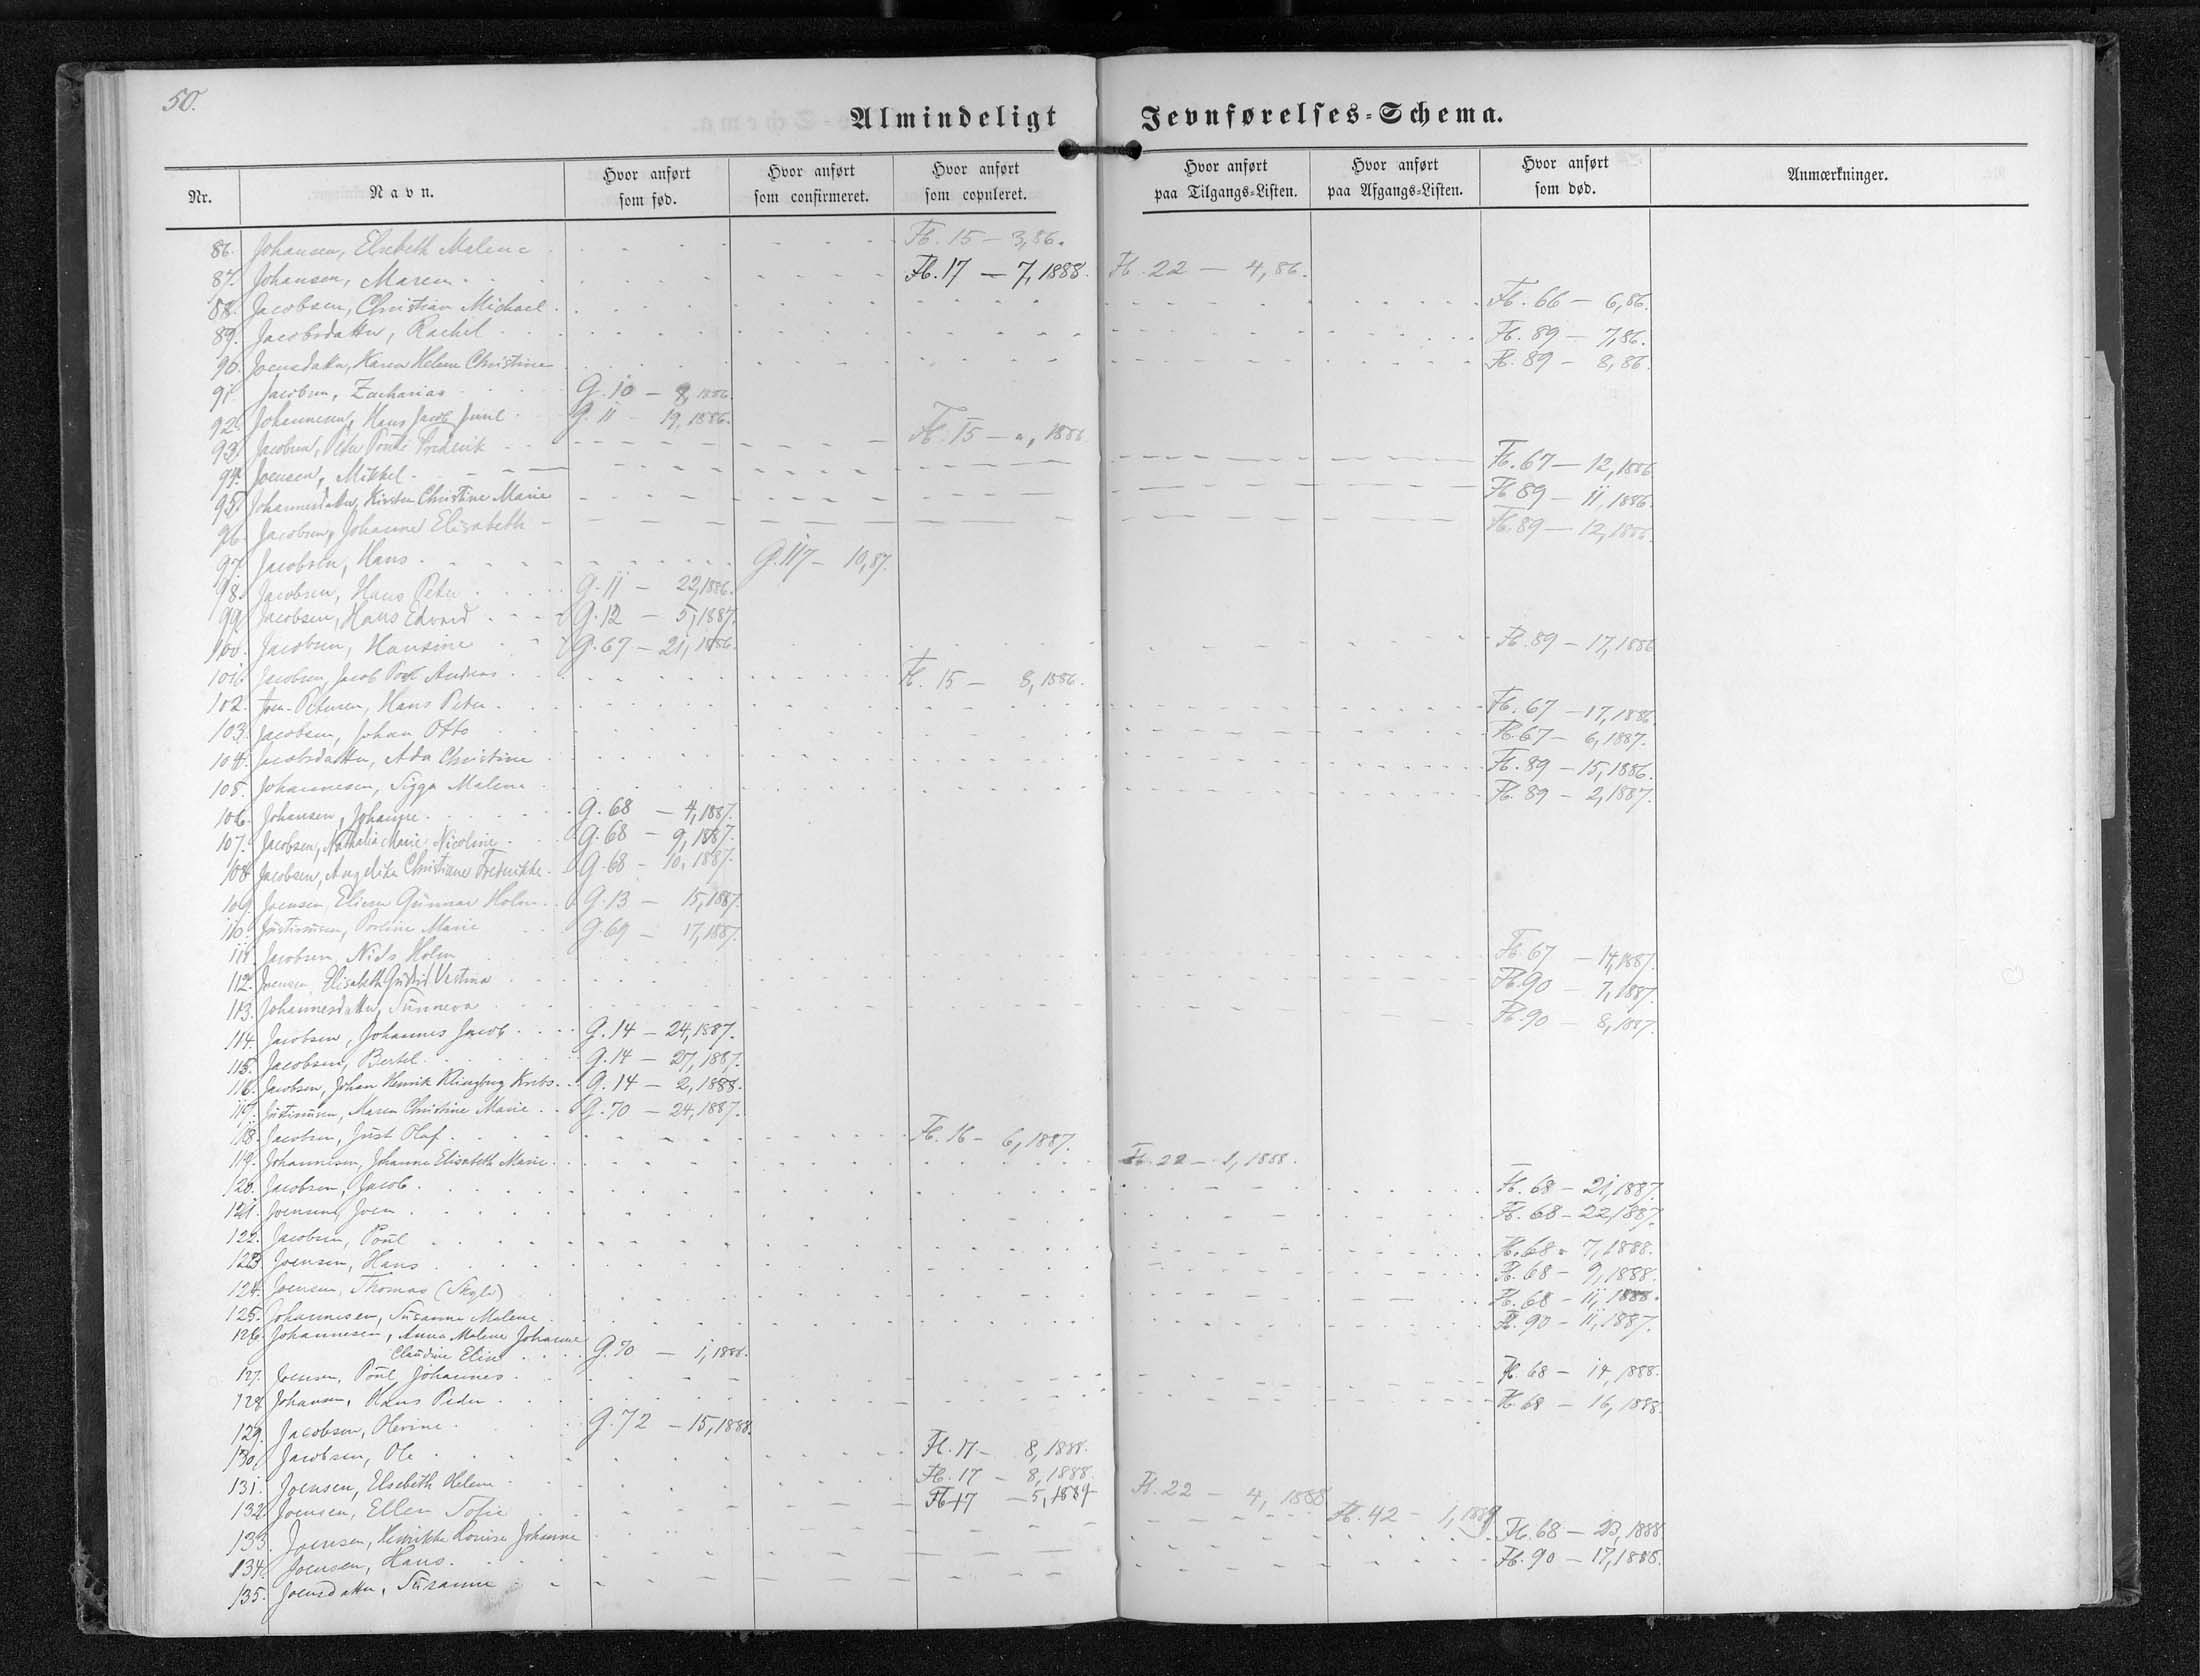 50.
Almindeligt Jevnførelses-Schema.
Nr. Navn. Hvor anført som fød. Hvor anført som confirmeret. Hvor anført som copuleret. Hvor anført paa Tilgangs-Listen. Hvor anført paa Afgangs-Listen. Hvor anført som død. Anmærkninger.
86. Johansen, Elsebeth Malene Fb. 15 — 3,86.
87. Johansen, Maren Fb. 17 — 7, 1888. Fb. 22 — 4, 86.
88. Jacobsen, Christian Michael Fb. 66 — 6,86.
89. Jacobsdatter, Rachel Fb. 89 — 7,86.
90. Joensdatter, Helene Christine Fb. 89 — 8,86.
91. Jacobsen, Zacharias G. 10 — 8, 1886.
92. Johannesen, Hans Jacob Juul G. 11 — 19, 1886.
93. Jacobsen, Peter Frederik Fb. 15 — 1886
94. Joensen, Mikkel Fb. 67 — 12, 1886
95. Johannesdatter, Kirsten Christine Marie Fb. 89 — 11, 1886.
96. Jacobsen, Johanne Elisabeth Fb. 89 — 12, 1886.
97. Jacobsen, Hans G. 117 — 10,87.
98. Jacobsen, Hans Peter G. 11 — 22, 1886.
99. Jacobsen, Hans Edvard G. 12 — 5, 1887.
100. Jacobsen, Hansine G. 67 — 21, 1886. Fb. 89 — 17, 1886
101. Jacobsen, Jacob Poul Andreas Fb. 15 — 8, 1886.
102. Joen-Petersen, Hans Peter Fb. 67 — 17, 1886.
103. Jacobsen, Johan Otto Fb. 67 — 6, 1887.
104. Jacobsdatter, Ada Christine Fb. 89 — 15, 1886.
105. Johannesen, Sigga Malene Fb. 89 — 2, 1887.
106. Johansen, Johanne G. 68 — 4, 1887.
107. Jacobsen, Nathalia Marie Nicoline G. 68 — 9, 1887.
108. Jacobsen, Angelika Christiane Frederikke G. 68 — 10, 1887.
109. Joensen, Gunnar Holm G. 13 — 15, 1887.
110. Justinusen, Poline Marie G. 69 — 17, 1887.
111. Jacobsen, Niels Holm Fb. 67 — 14, 1887.
112. Joensen, Elisabeth Gudrid Vestina Fb. 90 — 7, 1887.
113. Johannesdatter, Sunneva Fb. 90 — 8, 1887.
114. Jacobsen, Johannes Jacob G. 14 — 24, 1887.
115. Jacobsen, Bertel G. 14 — 27, 1887.
116. Jacobsen, Johan Henrik Krebs G. 14 — 2, 1888.
117. Justinusen, Maren Christine Marie G. 70 — 24, 1887.
118. Jacobsen, Just Olaf Fb. 16 — 6, 1887.
119. Johannesen, Johanne Elisabeth Marie Fb. 22 — 1, 1888.
120. Jacobsen, Jacob Fb. 68 — 21, 1887.
121. Joensen, Joen Fb. 68 — 22, 1887.
122. Jacobsen, Poul Fb. 68 — 7, 1888.
123. Joensen, Hans Fb. 68 — 9, 1888.
124. Joensen, Thomas Fb. 68 — 11, 1888.
125. Johannesen, Susanne Malene Fb. 90 — 11, 1887.
126. Johannesen, Anna Malene Johanne
Claudine Elise G. 70 — 1, 1888.
127. Joensen, Poul Johannes Fb. 68 — 14, 1888.
128. Johansen, Hans Peder Fb. 68 — 16, 1888.
129. Jacobsen, G. 72 — 15, 1888.
130. Jacobsen, Ole Fb. 17 — 8, 1888.
131. Joensen, Elsebeth Helene Fb. 17 — 8, 1888.
132. Joensen, Ellen Sofie Fb. 17 — 5, 1889 Fb. 22 — 4, 1888.
133. Joensen, Henrikke Louise Johanne Fb. 42 — 1, 1889
134. Joensen, Hans. Fb. 68 — 23, 1888
135. Joensdatter, Susanne Fb. 90 — 17, 1888.